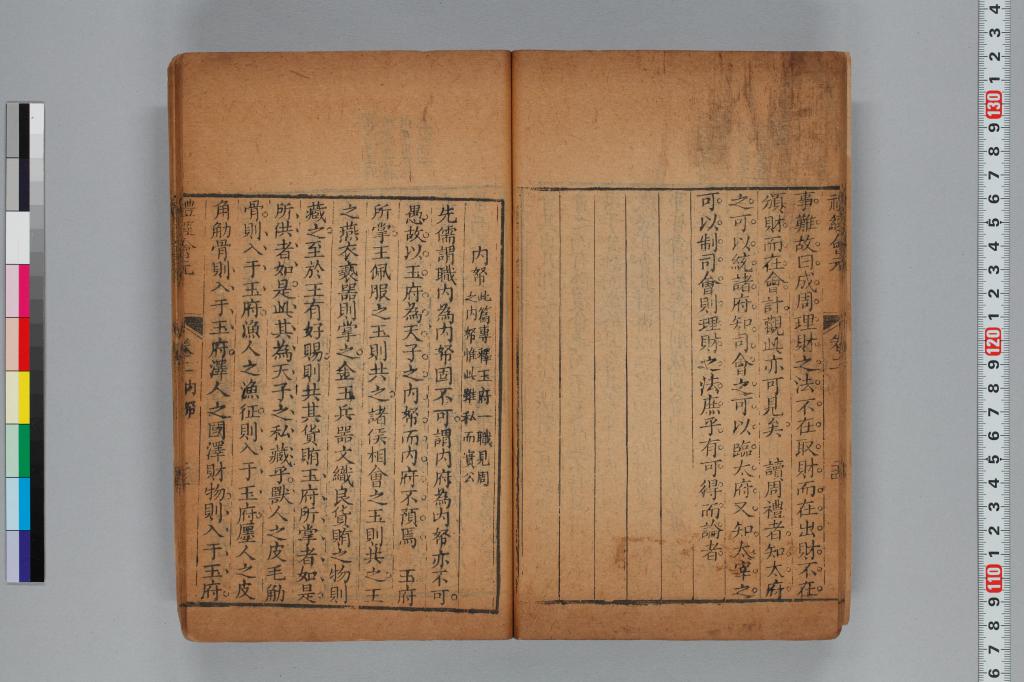 事難故曰成周理財之法不在取財而在出財不在
頒財而在會計觀此亦可見矣　讀周禮者知大府
之可以統諸府知司會之可以臨大府又知太宰之
可以制司會則理財之法庶乎有可得而論者
內帑此篇專釋玉府一職見周
之內帑惟此雖私而實公
先儒謂職內為內帑固不可謂內府為內帑亦不可
愚故以玉府為天子之內帑而內府不預焉　玉府
所掌王佩服之玉則共之諸侯相會之玉則共之王
之燕衣褻器則掌之金玉兵器文織良貨賄之物則
藏之至於王有好賜則共其貨賄玉府所掌者如是
所供者如是此其為天子之私藏乎獸人之皮毛觔
骨則入于玉府漁人之漁征則入于玉府廛人之皮
角觔骨則入于玉府澤人之國澤財物則入于玉府
禮經會元　卷二　內帑
130
120
110